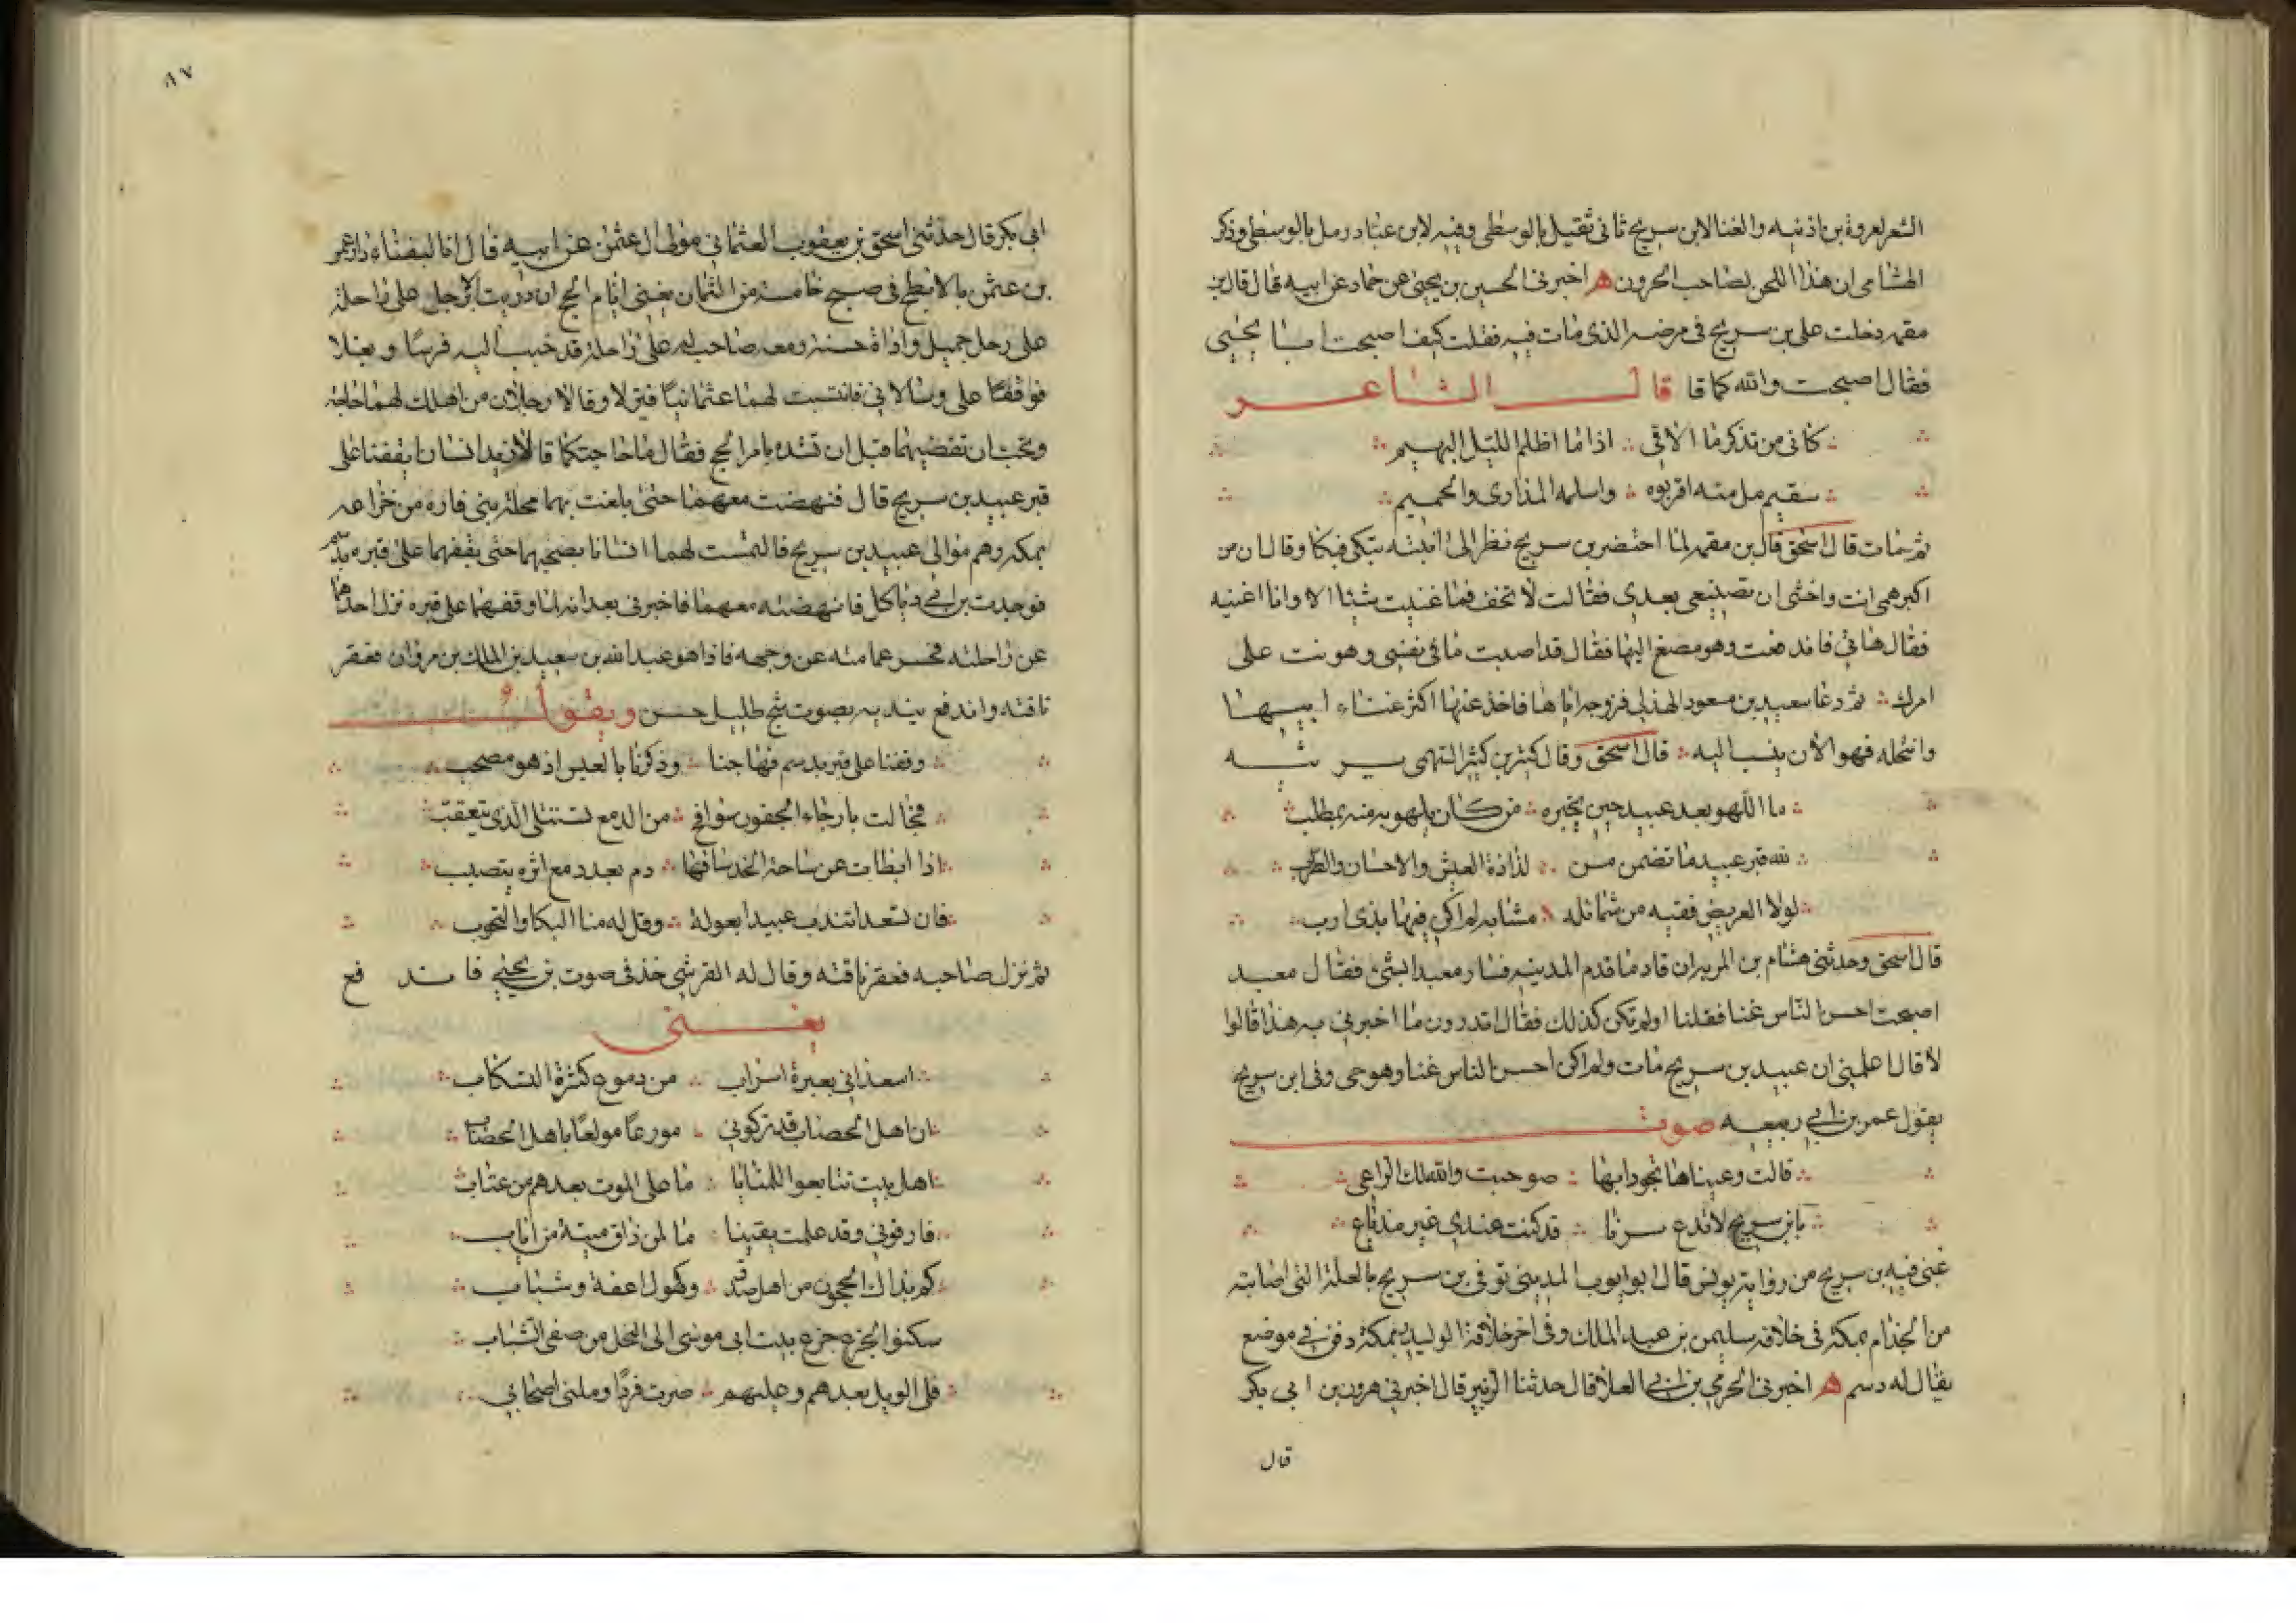 الشعر لعروة بن اذنيه والغنا لابن سريج ثاني ثقيل بالوسطى وفيه لابن عباد رمل بالوسطى وذكر
الهشامى ان هذا اللحن لصاحب الحرون ه اخبرنى الحسين بن يحيى عن حماد عن ابيه قال قال بن
مقمه دخلت على بن سريج فى مرضه الذى مات فيه فقلت كيف اصبحت ابا يحيى
فقال اصبحت والله كما قا قال الشاعر
كانى من تذكر ما الاقى اذا ما اظلم الليل البهيم
سقيم مل منه اقربوه واسلمه المداوى والحميم
ثم مات قال اسحق قال بن مقمه لما احتضر بن سريج نظر الى ابنته تبكى فبكا وقال ان من
اكبر همى انت واخشى ان تضيعى بعدى فقالت لا تخف فما غنيت شيئا الا وانا اغنيه
فقال هاتى فاندفعت وهو مصغ اليها فقال قد اصبت ما فى نفسى وهونت على
امرك ثم دعا سعيد بن مسعود الهذلى فزوجه اياها فاخذ عنها اكثر غناء ابيها
وانتحله فهو الآن ينسب اليه قال اسحق وقال كثير بن كثير السهمى يرثيه
ما اللهو بعد عبيد حين يخبره من كان يلهو به منه بمطلب
لله قبر عبيد ما تضمن من لذاذة العيش والاحسان والطرب
لولا الغريض ففيه من شمائله مشابه لم اكن فيها بذى ارب
قال اسحق وحدثنى هشام بن المريه ان قادما قدم المدينه فسار معبدا بشئ فقال معبد
اصبحت احسن الناس غنا فقلنا اولم تكن كذلك فقال اتدرون ما اخبرنى به هذا قالوا
لا قال اعلمنى ان عبيد بن سريج مات ولم اكن احسن الناس غنا وهو حى وفى ابن سريج
يقول عمر بن ابى ربيعه صوت
قالت وعيناها تجودانها صوحبت والله لك الراعى
يا بن سريج لا تذع سرنا قد كنت عندى غير مذياع
غنى فيه بن سريج من رواية يونس قال ابو ايوب المدينى توفى بن سريج بالعلة التى اصابته
من الجذام بمكة فى خلافة سليمن بن عبد الملك وفى اخر خلافة الوليد بمكة دفن فى موضع
يقال له دسم ه اخبرنى الحرمى بن ابى العلا قال حدثنا الزبير قال اخبرنى هرون بن ابى بكر
قال
٨٧
ابى بكر قال حدثنى اسحق بن يعقوب العثمانى مولى ال عثمن عن ابيه قال انا لبفناء دار عمر
بن عثمن بالابطح فى صبح خامسة من الثمان يعنى ايام الحج ان دريت الا برجل على راحلة
على رحل جميل واداة حسنه ومعه صاحب له على راحلة قد جنب اليه فرسا وبغلا
فوقفا على وسالانى فانتسبت لهما عثمانيا فنزلا وقالا رجلان من اهلك لهما حاجة
ونحب ان تقضيها قبل ان تشده بامر الحج فقال ما حاجتكما قالا نريد انسانا يقفنا على
قبر عبيد بن سريج قال فنهضت معهما حتى بلغت بهما محلة بنى قاره من خزاعه
بمكه وهم موالى عبيد بن سريج فالتمست لهما انسانا يصحبهما حتى يقفهما على قبره بدسم
فوجدت بن ابى دباكل فانهضته معهما فاخبرنى بعد انه لما وقفهما على قبره نزل احدهما
عن راحلته فحسر عمامته عن وجهه فاذا هو عبد الله بن سعيد بن الملك بن مروان فعقر
ناقته واندفع يندبه بصوت شج طليل حسن ويقول
وقفنا على قبر بدسم فهاجنا وذكرنا بالعيس اذ هو مصحب
فجالت بارجاء الجفون سوافح من الدمع تستتلى الذى يتعقب
اذا ابطات عن ساحة الخد ساقها دم بعد دمع اثره يتصبب
فان تسعدا نندب عبيدا بعولة وقل له منا البكا والتحوب
ثم نزل صاحبه فعقر ناقته وقال له القرشى خذ فى صوت بن يحيى فاندفع
يغنى
اسعدانى بعبرة اسراب من دموع كثيرة التسكاب
ان اهل الحصاب قد تركونى مورعا مولعا باهل الحصاب
اهل بيت تتابعوا للمنايا ما على الموت بعدهم من عتاب
فارقونى وقد علمت يقينا ما لمن ذاق ميتة من اياب
كم بذاك الحجون من اهل صدق وكهول اعفة وشباب
سكنوا الجزع جزع بيت ابى موسى الى النخل من صفى الشباب
فلى الويل بعدهم وعليهم صرت فردا وملنى اصحابى